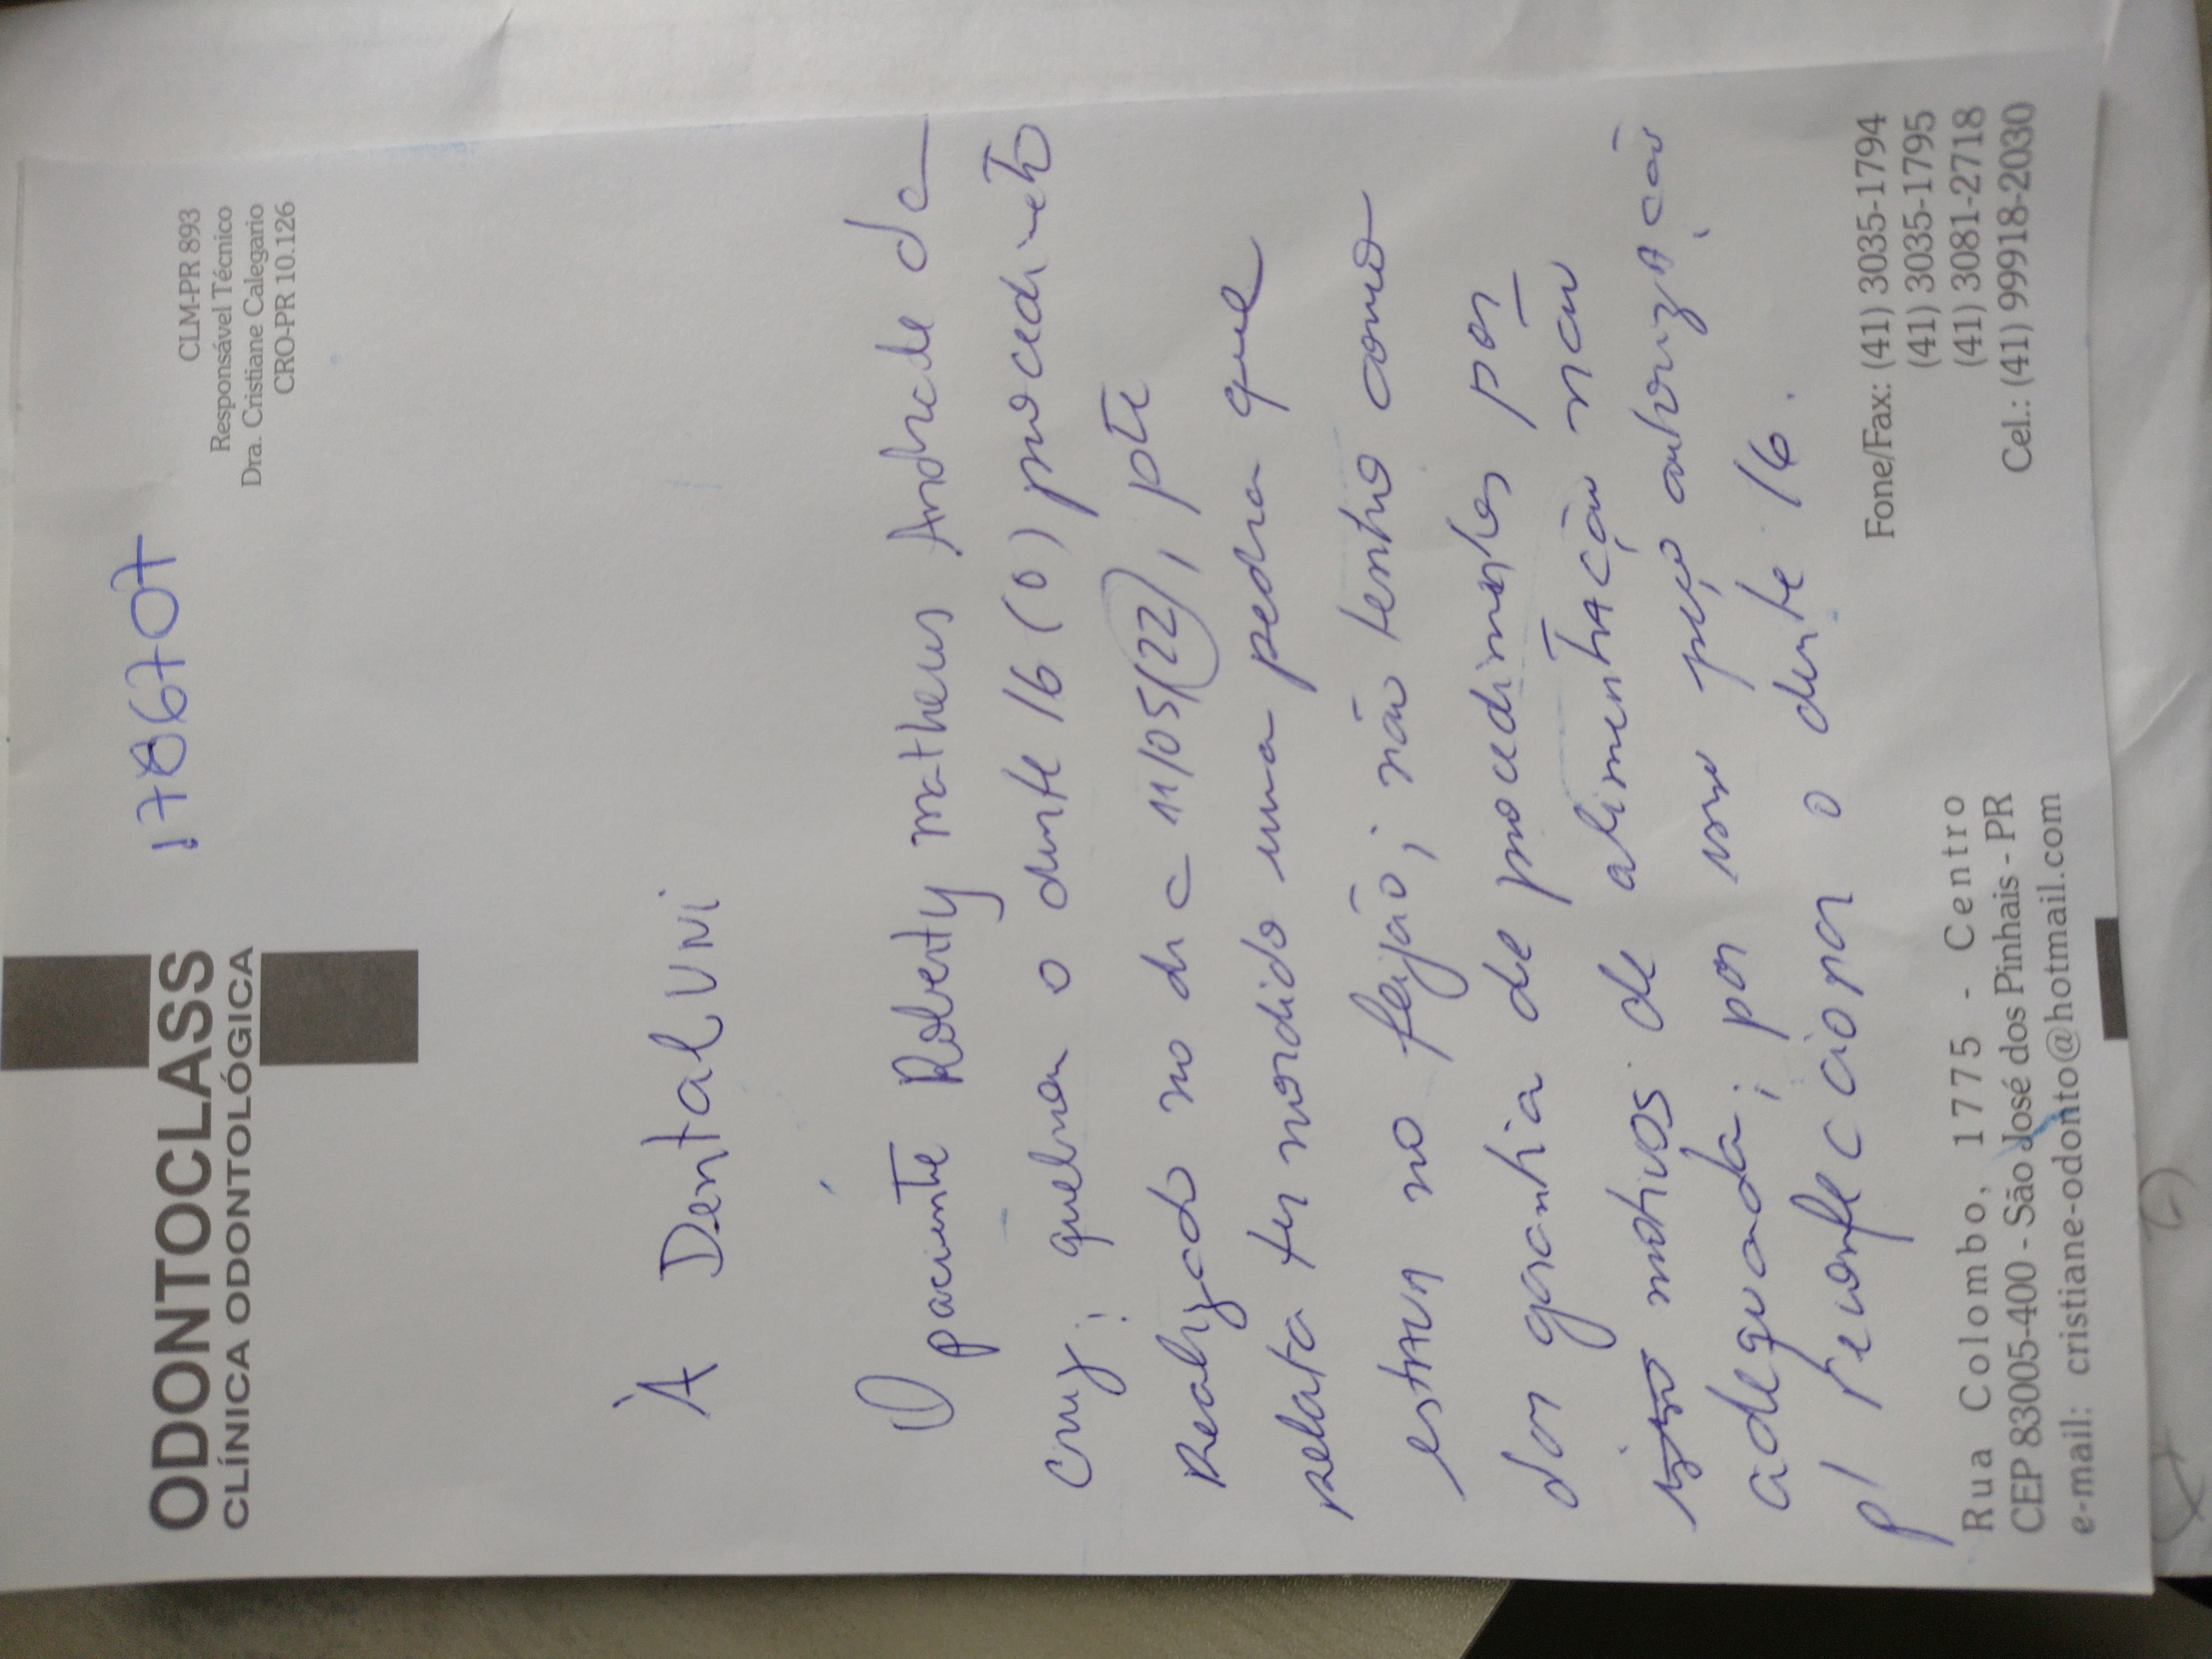 ODONTOCLASS
CLÍNICA ODONTOLÓGICA
1786707
CLM-PR 893
Responsável Técnico
Dra. Cristiane Calegario
CRO-PR 10.126
À Dental Uni
O paciente Roberty matheus Andrade da
Cruz; quebrou o dente 16 (O) procedimeto
Realizado no dia 11/05/22, pte
relata ter mordido uma pedra que
estava no feijão; não tenho como
dar garantia de procedimentos por
motivos de alimentação não
adequada; por isso peço autorização
p/ reconfeccionar o dente 16.
Rua Colombo, 1775 - Centro
CEP 83005-400 - São José dos Pinhais - PR
e-mail: cristiane-odonto@hotmail.com
Fone/Fax: (41) 3035-1794
(41) 3035-1795
(41) 3081-2718
Cel.: (41) 99918-2030